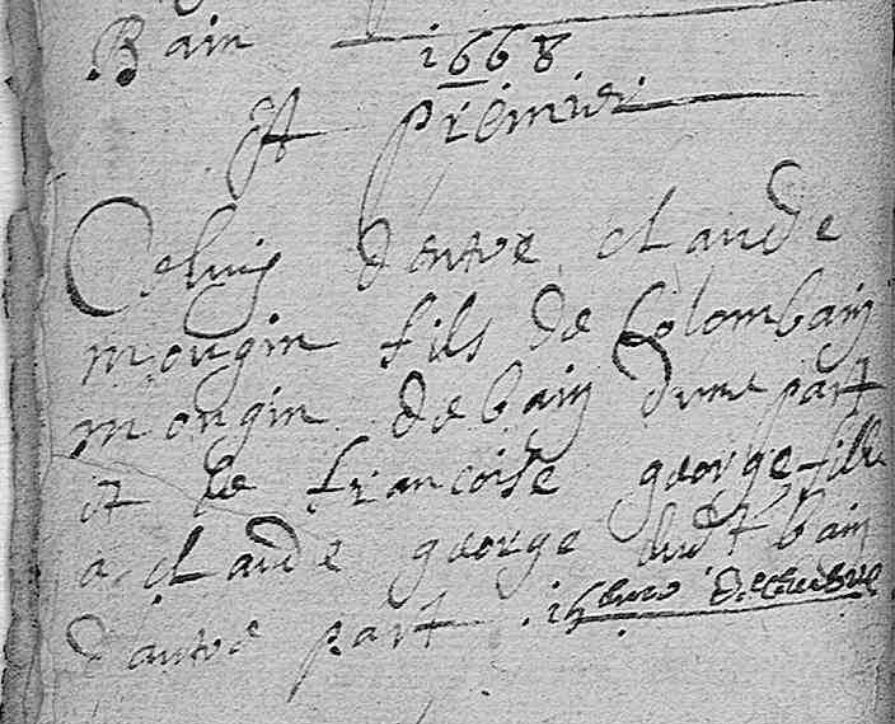 Bain
1668
Et premier
Celuy dentre claude
mougin fils de Colombain
mongin de bain dune part
et de francoise george fille
a claude george dudt bain
dautre part . decembre